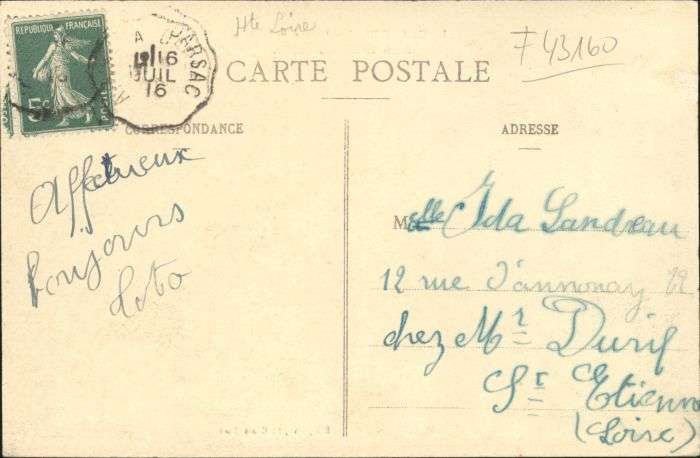 RÉPUBLIQUE FRANÇAISE
5c
POSTES
CHARSAC
16
JUIL
16
Hte Loire
F 43160
CARTE POSTALE
CORRESPONDANCE
ADRESSE
Affectueux
bonjours
Melle Ida Landreau
12 rue d'annonay 12
chez Mr Duril
St Etienne
(Loire)